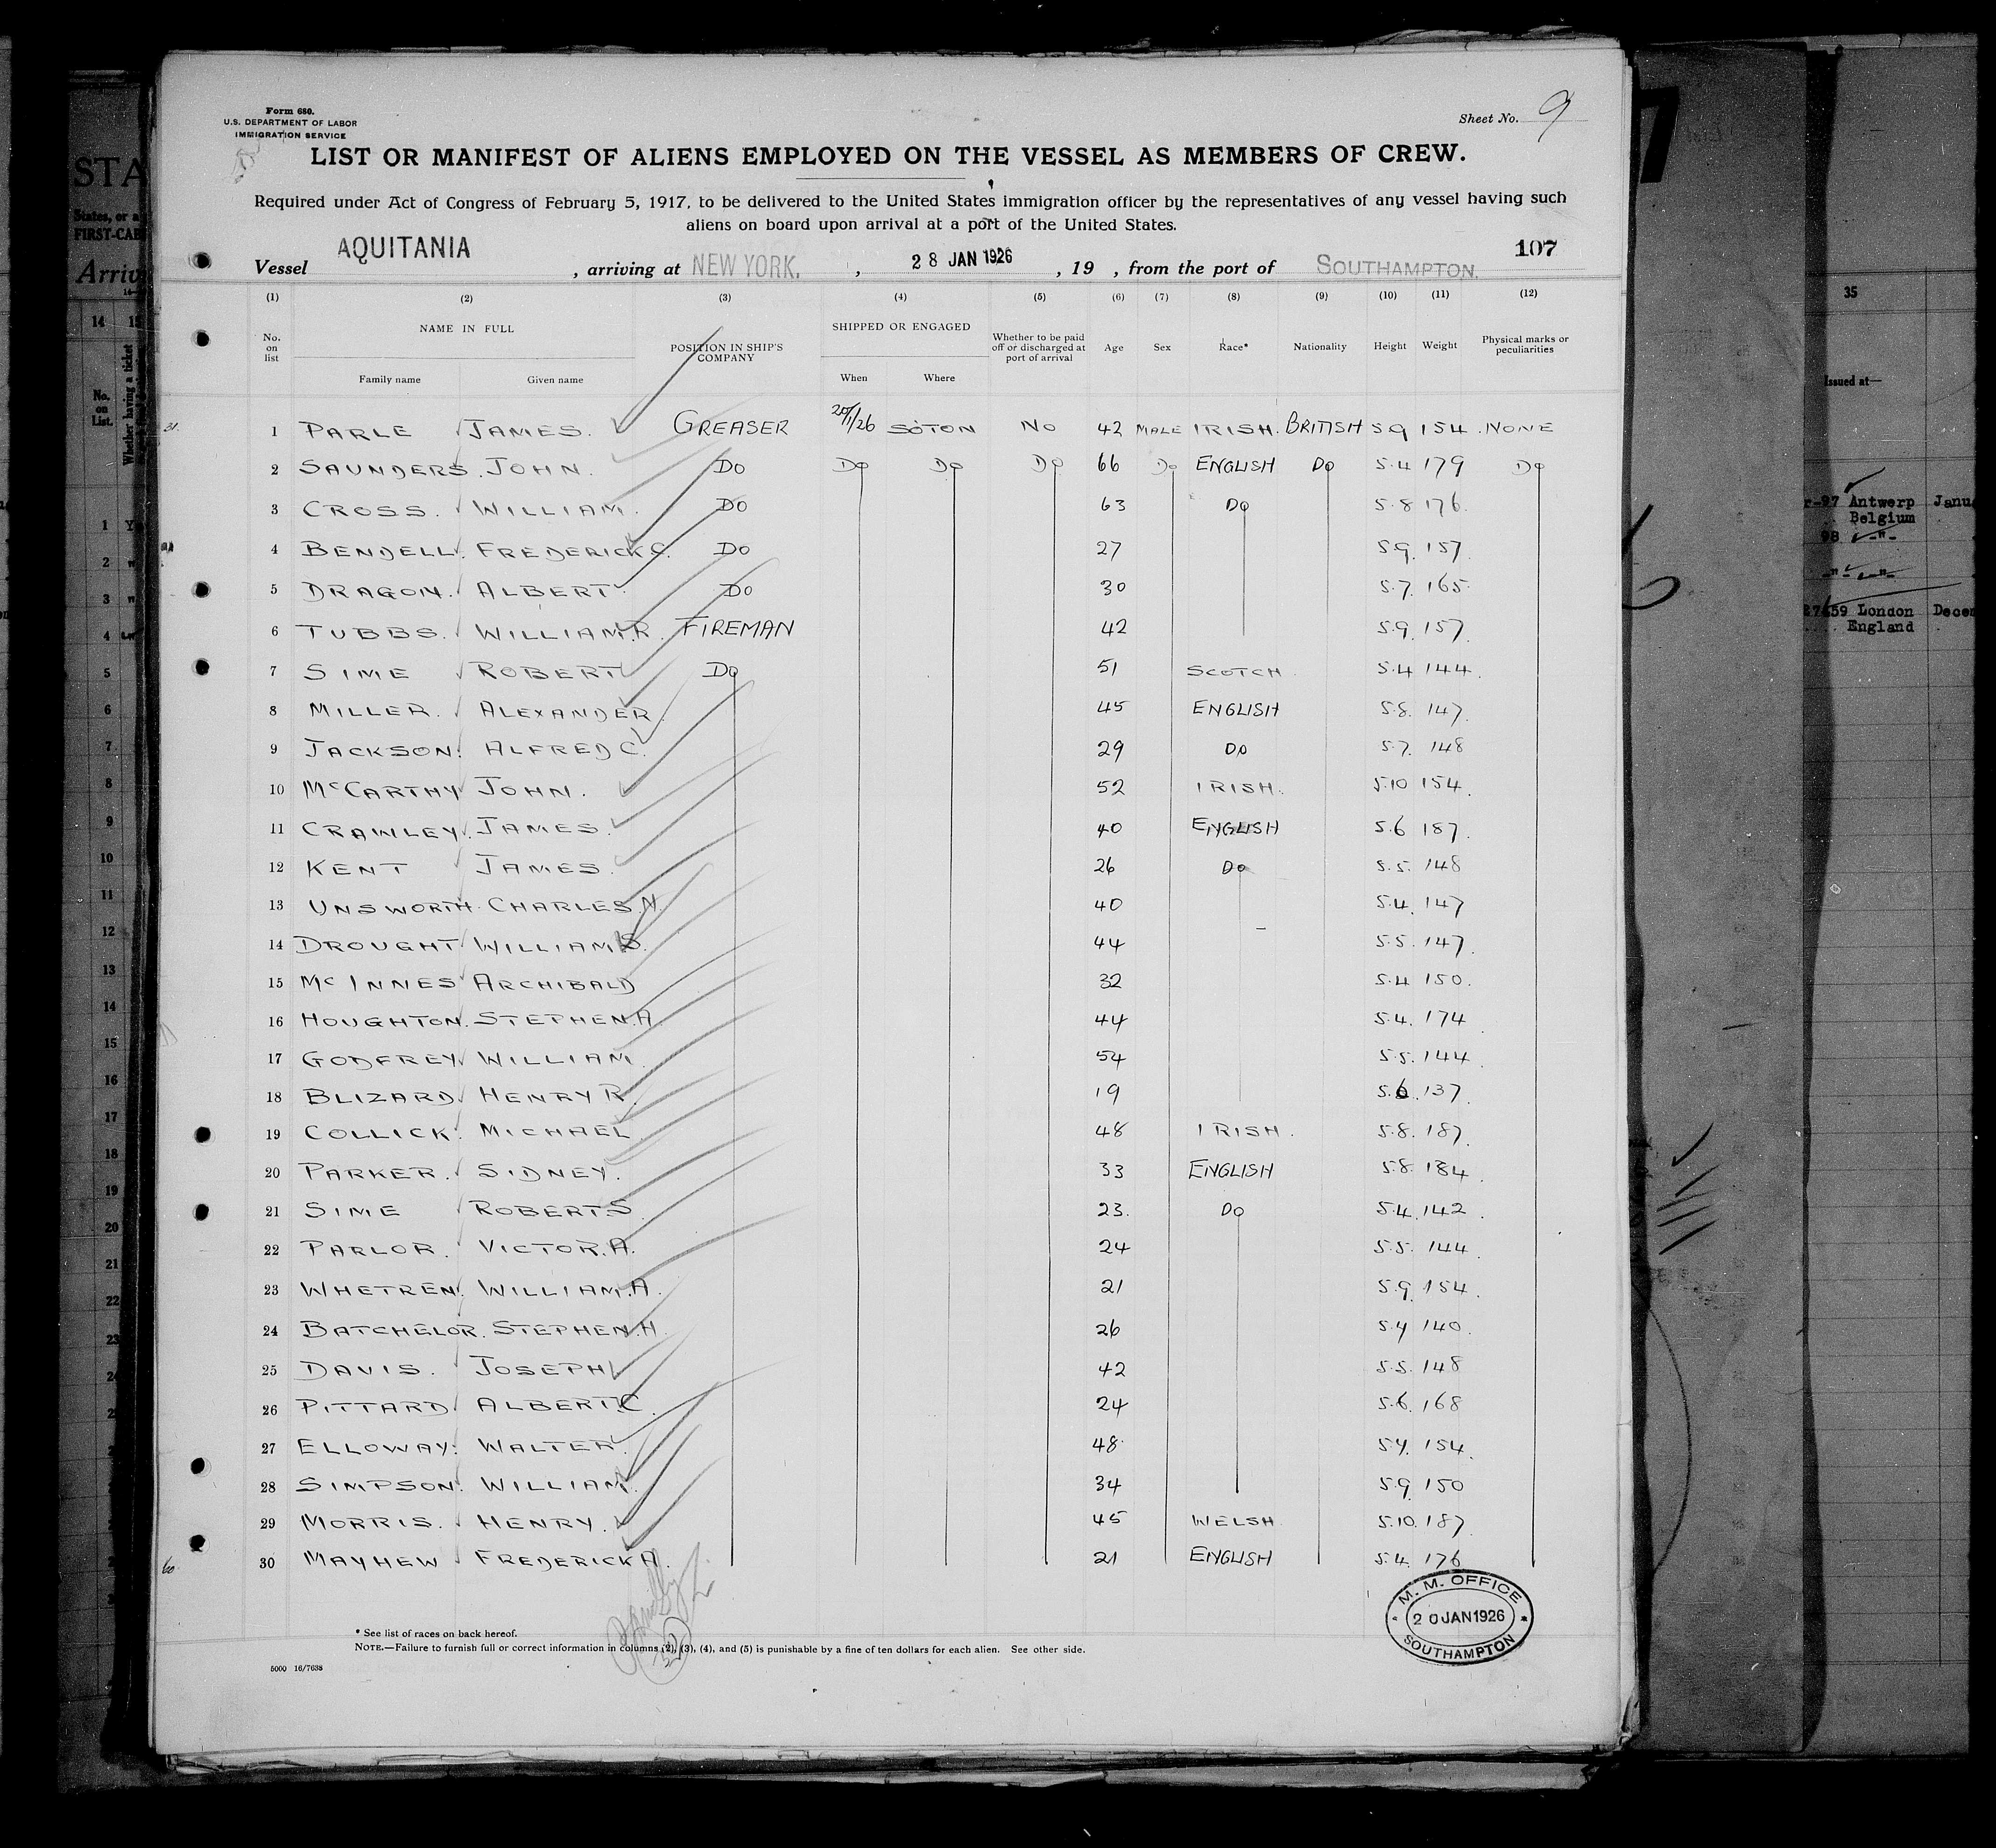 Form 680.
U.S. DEPARTMENT OF LABOR
IMMIGRATION SERVICE
Sheet No. 9
LIST OR MANIFEST OF ALIENS EMPLOYED ON THE VESSEL AS MEMBERS OF CREW.
Required under Act of Congress of February 5, 1917, to be delivered to the United States immigration officer by the representatives of any vessel having such
aliens on board upon arrival at a port of the United States.
107
Vessel AQUITANIA , arriving at NEW YORK. , 28 JAN 1926 , 19 , from the port of SOUTHAMPTON.
(1) (2) (3) (4) (5) (6) (7) (8) (9) (10) (11) (12)
No. on list NAME IN FULL Family name Given name POSITION IN SHIP'S COMPANY SHIPPED OR ENGAGED When Where Whether to be paid off or discharged at port of arrival Age Sex Race* Nationality Height Weight Physical marks or peculiarities
1 PARLE JAMES. GREASER 20/1/26 SOTON NO 42 MALE IRISH. BRITISH 5 9 154 . NONE
2 SAUNDERS. JOHN. DO DO DO DO 66 DO ENGLISH DO 5.4 179 DO
3 CROSS. WILLIAM. DO 63 DO 5.8 176.
4 BENDELL. FREDERICK C. DO 27 5.9. 157.
5 DRAGON. ALBERT. DO 30 5.7. 165.
6 TUBBS. WILLIAM.R. FIREMAN 42 5.9. 157.
7 SIME ROBERT DO 51 SCOTCH. 5.4 144.
8 MILLER. ALEXANDER. 45 ENGLISH 5.8. 147.
9 JACKSON. ALFRED C. 29 DO 5.7. 148
10 McCARTHY JOHN. 52 IRISH. 5.10 154.
11 CRAWLEY. JAMES. 40 ENGLISH 5.6 187.
12 KENT JAMES. 26 DO 5.5. 148
13 UNSWORTH. CHARLES.N. 40 5.4. 147
14 DROUGHT WILLIAM S. 44 5.5. 147.
15 Mc INNES ARCHIBALD 32 5.4 150.
16 HOUGHTON. STEPHEN.A. 44 5.4. 174.
17 GODFREY WILLIAM. 54 5.5. 144.
18 BLIZARD. HENRY R. 19 5.6. 137.
19 COLLICK. MICHAEL. 48 IRISH. 5.8. 187.
20 PARKER. SIDNEY. 33 ENGLISH 5.8. 184.
21 SIME ROBERT.S. 23. DO 5.4. 142.
22 PARLOR. VICTOR.A. 24 5.5. 144.
23 WHETREN. WILLIAM.A. 21 5.9. 154.
24 BATCHELOR. STEPHEN.H. 26 5.4 140.
25 DAVIS. JOSEPH 42 5.5. 148
26 PITTARD. ALBERT.C. 24 5.6. 168
27 ELLOWAY. WALTER. 48. 5.4. 154.
28 SIMPSON. WILLIAM. 34 5.9. 150
29 MORRIS. HENRY. 45 WELSH. 5.10. 187.
30 MAYHEW FREDERICK A. 21 ENGLISH 5.4. 176
M. M. OFFICE
20 JAN 1926
SOUTHAMPTON
* See list of races on back hereof.
NOTE.—Failure to furnish full or correct information in columns (2), (3), (4), and (5) is punishable by a fine of ten dollars for each alien. See other side.
5000 16/7638
35
Issued at—
Antwerp
Belgium
London
England